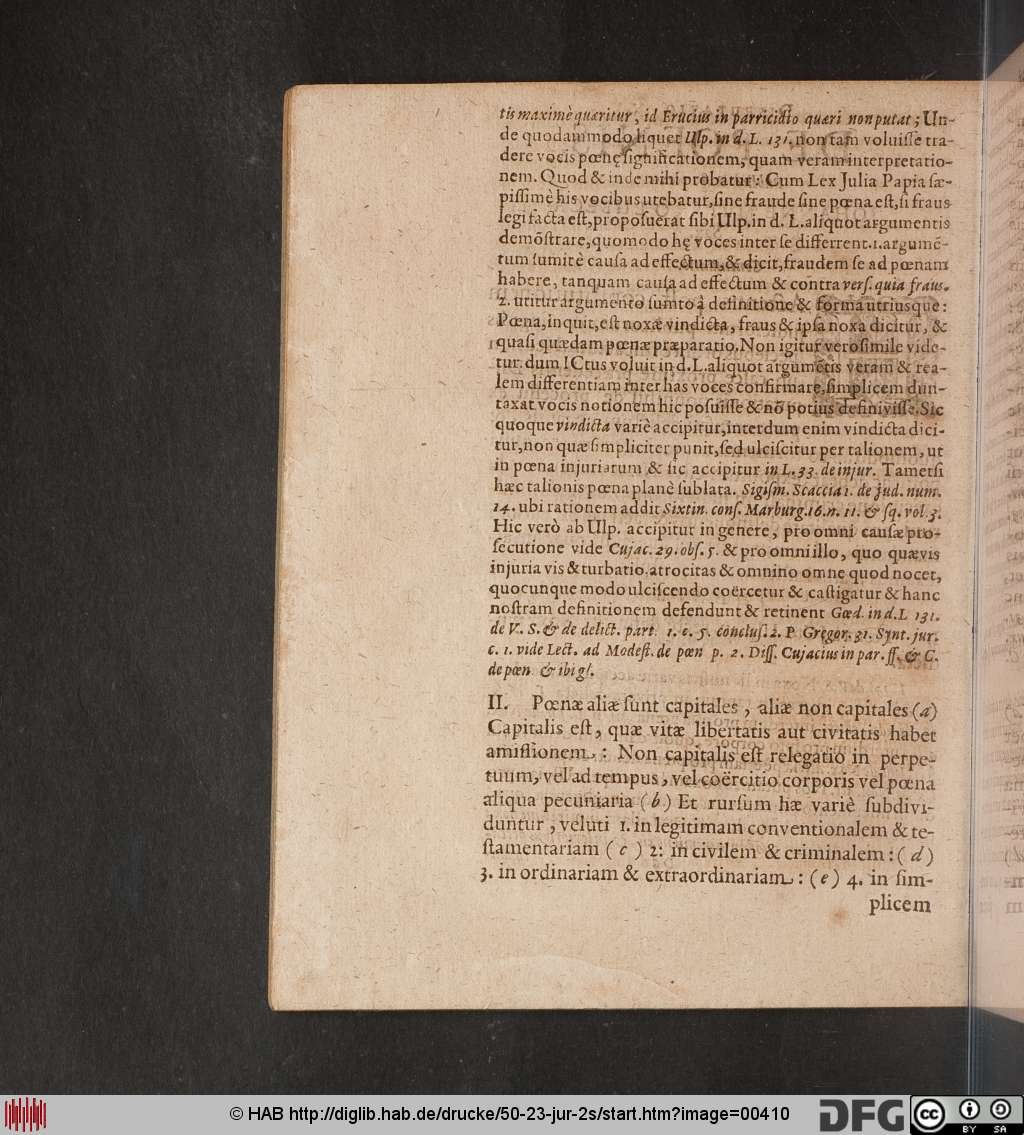 tis maximè quæritur, id Erucius in parricidio quæri non putat; Un-
de quodammodo liquet Ulp. in d. L. 131. non tam voluiſſe tra-
dere vocis pœnę ſignificationem, quam veram interpretatio-
nem. Quod & inde mihi probatur: Cum Lex Julia Papia ſæ-
piſſimè his vocibus utebatur, ſine fraude ſine pœna eſt, ſi fraus
legi facta eſt, propoſuerat ſibi Ulp. in d. L. aliquot argumentis
demõſtrare, quomodo hę voces inter ſe differrent. 1. argumẽ-
tum ſumitè cauſa ad effectum, & dicit, fraudem ſe ad pœnam
habere, tanquam cauſa ad effectum & contra verſ. quia fraus.
2. utitur argumento ſumto à definitione & forma utriusque:
Pœna, inquit, eſt noxæ vindicta, fraus & ipſa noxa dicitur, &
quaſi quædam pœnæ præparatio. Non igitur veroſimile vide-
tur. dum ICtus voluit in d. L. aliquot argumẽtis veram & rea-
lem differentiam inter has voces confirmare, ſimplicem dun-
taxat vocis notionem hic poſuiſſe & nõ potius definiviſſe. Sic
quoque vindicta variè accipitur, interdum enim vindicta dici-
tur, non quæ ſimpliciter punit, ſed ulciſcitur per talionem, ut
in pœna injuriarum & ſic accipitur in L. 33. de injur. Tametſi
hæc talionis pœna planè ſublata. Sigiſm. Scaccia 1. de jud. num.
14. ubi rationem addit Sixtin. conſ. Marburg. 16. n. 11. & ſq. vol. 3.
Hic verò ab Ulp. accipitur in genere, pro omni cauſæ pro-
ſecutione vide Cujac. 29. obſ. 5. & pro omni illo, quo quævis
injuria vis & turbatio. atrocitas & omnino omne quod nocet,
quocunque modo ulciſcendo coërcetur & caſtigatur & hanc
noſtram definitionem defendunt & retinent Gœd. in d. L 131.
de V. S. & de delict. part. 1. c. 5. concluſ. 2. P. Gregor. 31. Synt. jur.
c. 1. vide Lect. ad Modeſt. de pœn p. 2. Diſſ. Cujacius in par. ff. & C.
de pœn. & ibi gl.
II. Pœnæ aliæ ſunt capitales, aliæ non capitales (a)
Capitalis eſt, quæ vitæ libertatis aut civitatis habet
amiſſionem: Non capitalis eſt relegatio in perpe-
tuum, vel ad tempus, vel coërcitio corporis vel pœna
aliqua pecuniaria (b) Et rurſum hæ variè ſubdivi-
duntur, veluti 1. in legitimam conventionalem & te-
ſtamentariam (c) 2: in civilem & criminalem: (d)
3. in ordinariam & extraordinariam: (e) 4. in ſim-
plicem
© HAB http://diglib.hab.de/drucke/50-23-jur-2s/start.htm?image=00410
DFG
cc BY SA